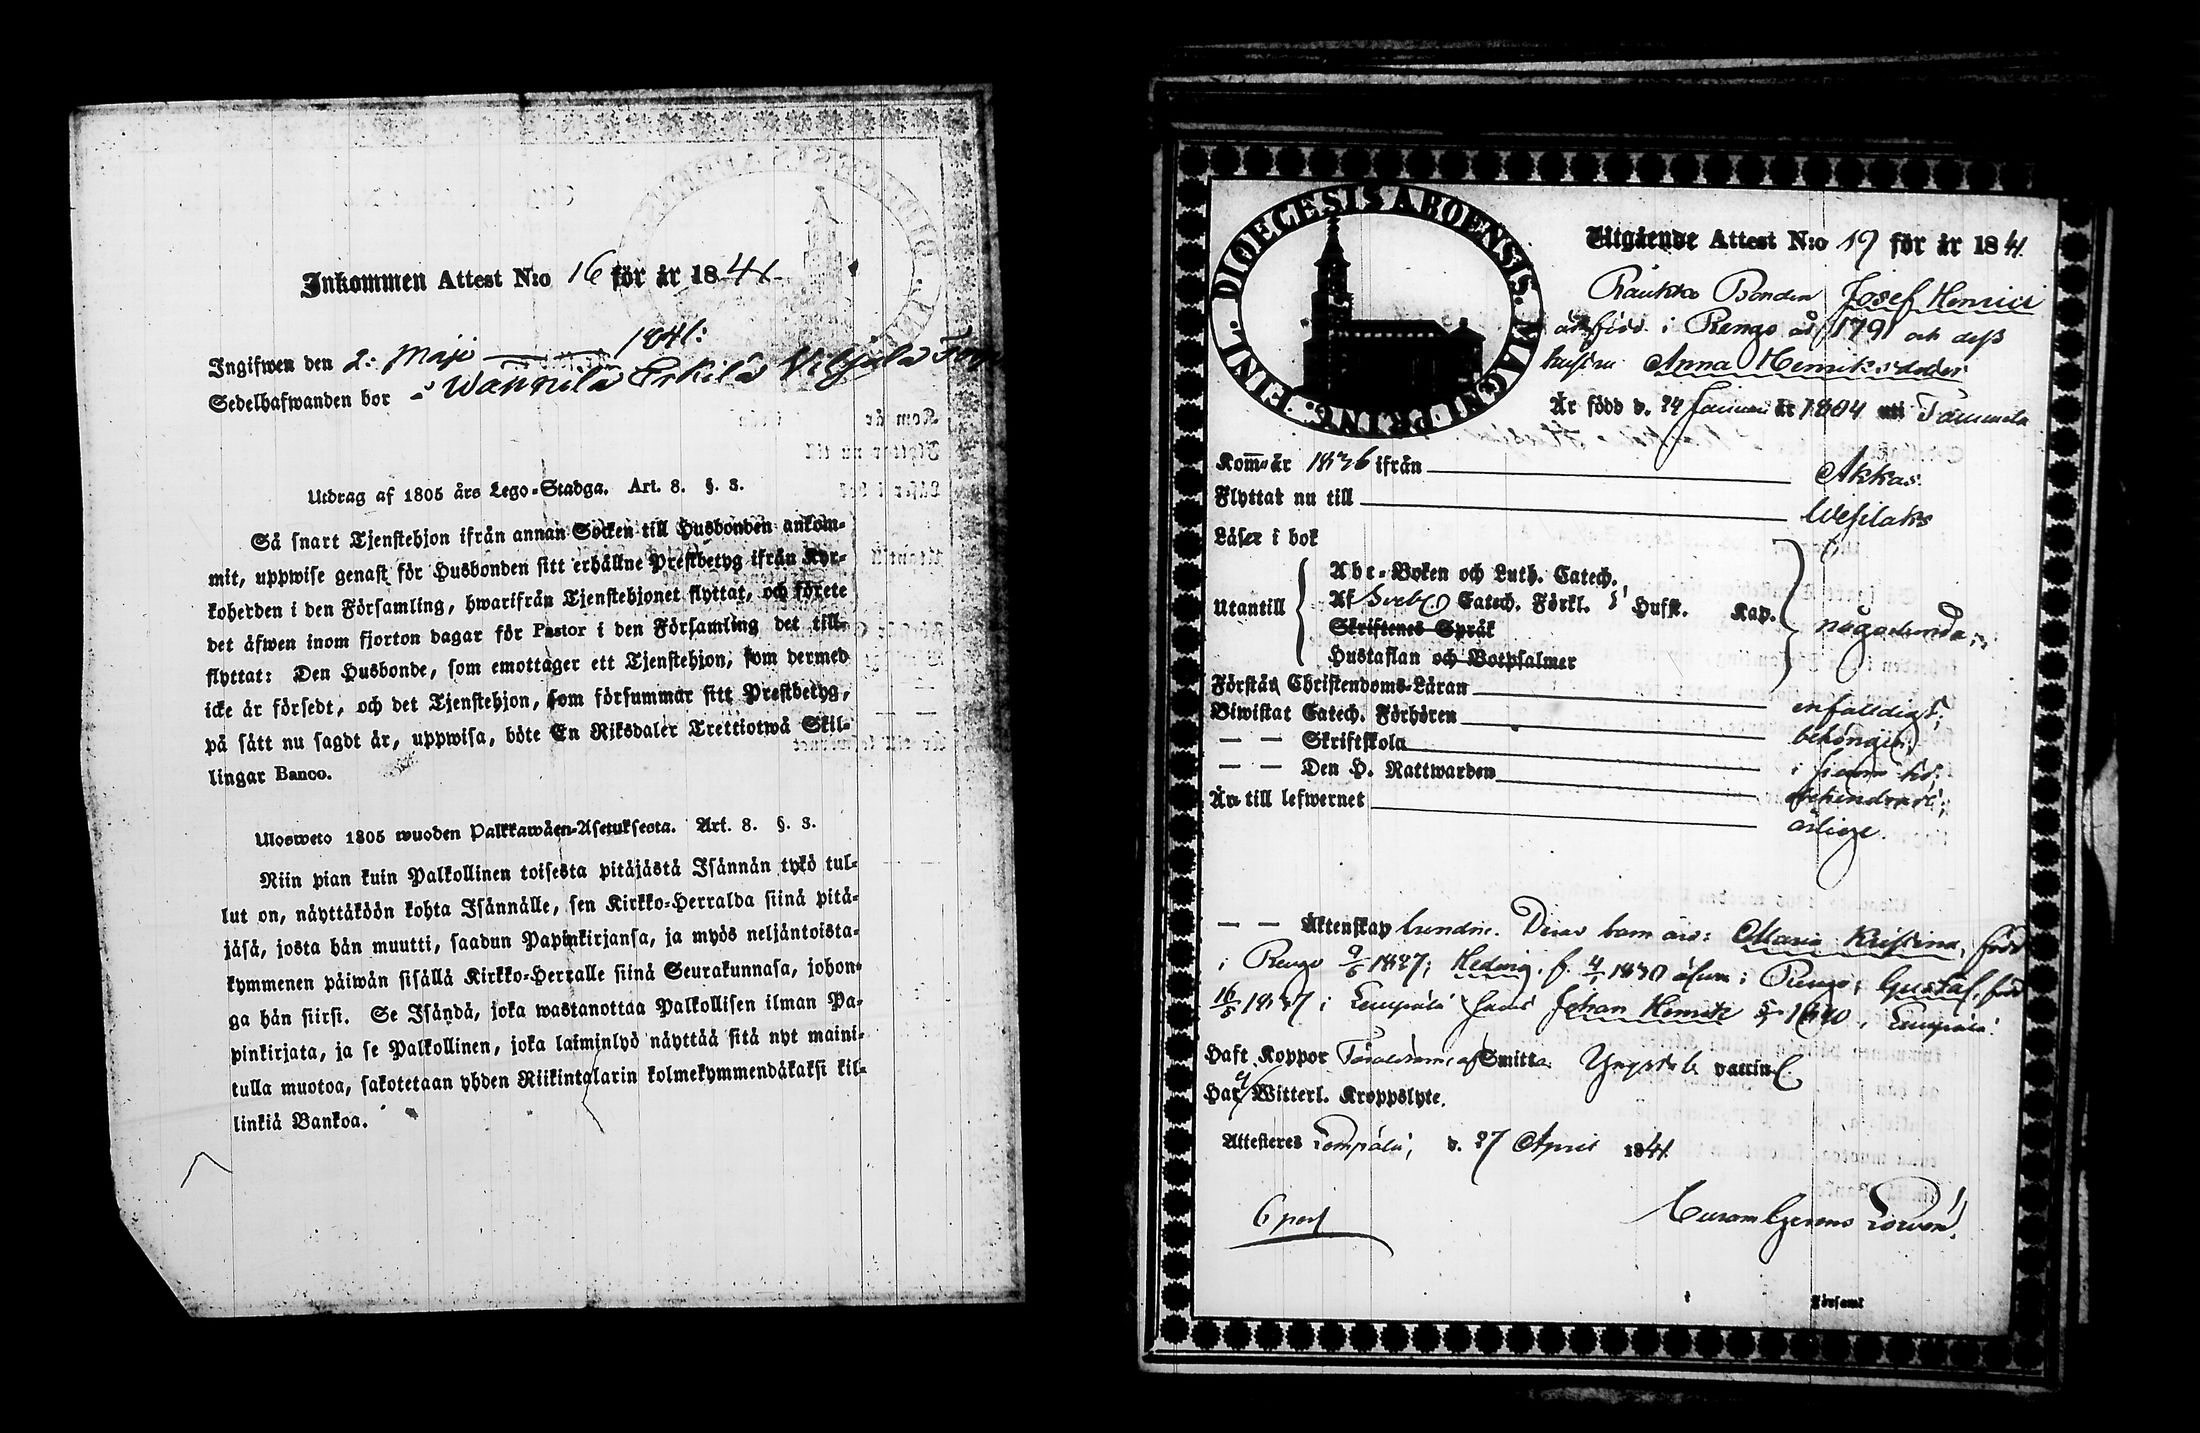 Inkommen Attest N:o 16 för år 1841
Ingifwen den 2: Maji 1841:
Sedelhafwanden bor i Wannila Erkilä Viljala
Utdrag af 1805 års Lego-Stadga. Art. 8. §. 3.
Så snart Tjenstehjon ifrån annan Socken till Husbonden ankom-
mit, uppwise genast för Husbonden sitt erhållne Prestbetyg ifrån Kyr-
koherden i den Församling, hwarifrån Tjenstehjonet flyttat, och förete
det äfwen inom fjorton dagar för Pastor i den Församling det till-
flyttat: Den Husbonde, som emottager ett Tjenstehjon, som dermed
icke är försedt, och det Tjenstehjon, som försummar sitt Prestbetyg,
på sätt nu sagdt är, uppwisa, böte En Riksdaler Trettiotwå Skil-
lingar Banco.
Ulosweto 1805 wuoden Palkkawäen-Asetuksesta. Art. 8. §. 3.
Niin pian kuin Palkollinen toisesta pitäjästä Isännän tykö tul-
lut on, näyttäköön kohta Isännälle, sen Kirkko-Herralda siinä pitä-
jäsä, josta hän muutti, saadun Papinkirjansa, ja myös neljäntoista-
kymmenen päiwän sisällä Kirkko-Herralle siinä Seurakunnasa, johon-
ga hän siirsi. Se Isändä, joka wastanottaa Palkollisen ilman Pa-
pinkirjata, ja se Palkollinen, joka laiminlyö näyttää sitä nyt maini-
tulla muotoa, sakotetaan yhden Riikintalarin kolmekymmendäkaksi kil-
linkiä Bankoa.
DIOECESIS ABOENSIS. MAGNI PRINC. FINL.
Utgående Attest N:o 19 för år 1841.
Raukko Bonden Josef Henrici
är född i Rengo år 1791 och dess
hustru Anna Henriksdotter
Är född d. 24 Januari år 1804 uti Tammela
Kom år 1836 ifrån Akkas
Flyttat nu till Wesilaks
Läser i bok
Abc-Boken och Luth. Catech.
Utantill Af Sveb. Catech. Förkl. Hufst. Kap. någorlunda;
Skriftenes Språk
Hustaflan och Botpsalmer
Förstår Christendoms-Läran enfaldigt;
Biwistat Catech. Förhören behörigen;
— — Skriftskola i sinom tid;
— — Den H. Nattwarden
Är till lefwernet ärlige.
— — Äktenskap bundne. Deras barn äro: Maria Kristina, född
i Rengo 9/6 1827; Hedvig, f. 1830 äfven i Rengo; Gustaf, född
16/5 1837 i Lempälä samt Johan Henrik 1840 i Lempälä.
Haft Koppor Föräldrarne af Smitta Yngste b. vaccin.
Har ej Witterl. Kroppslyte.
Attesteres Lempälä, d. 27 April 1841.
6 pers
Curam Gerens
Församl